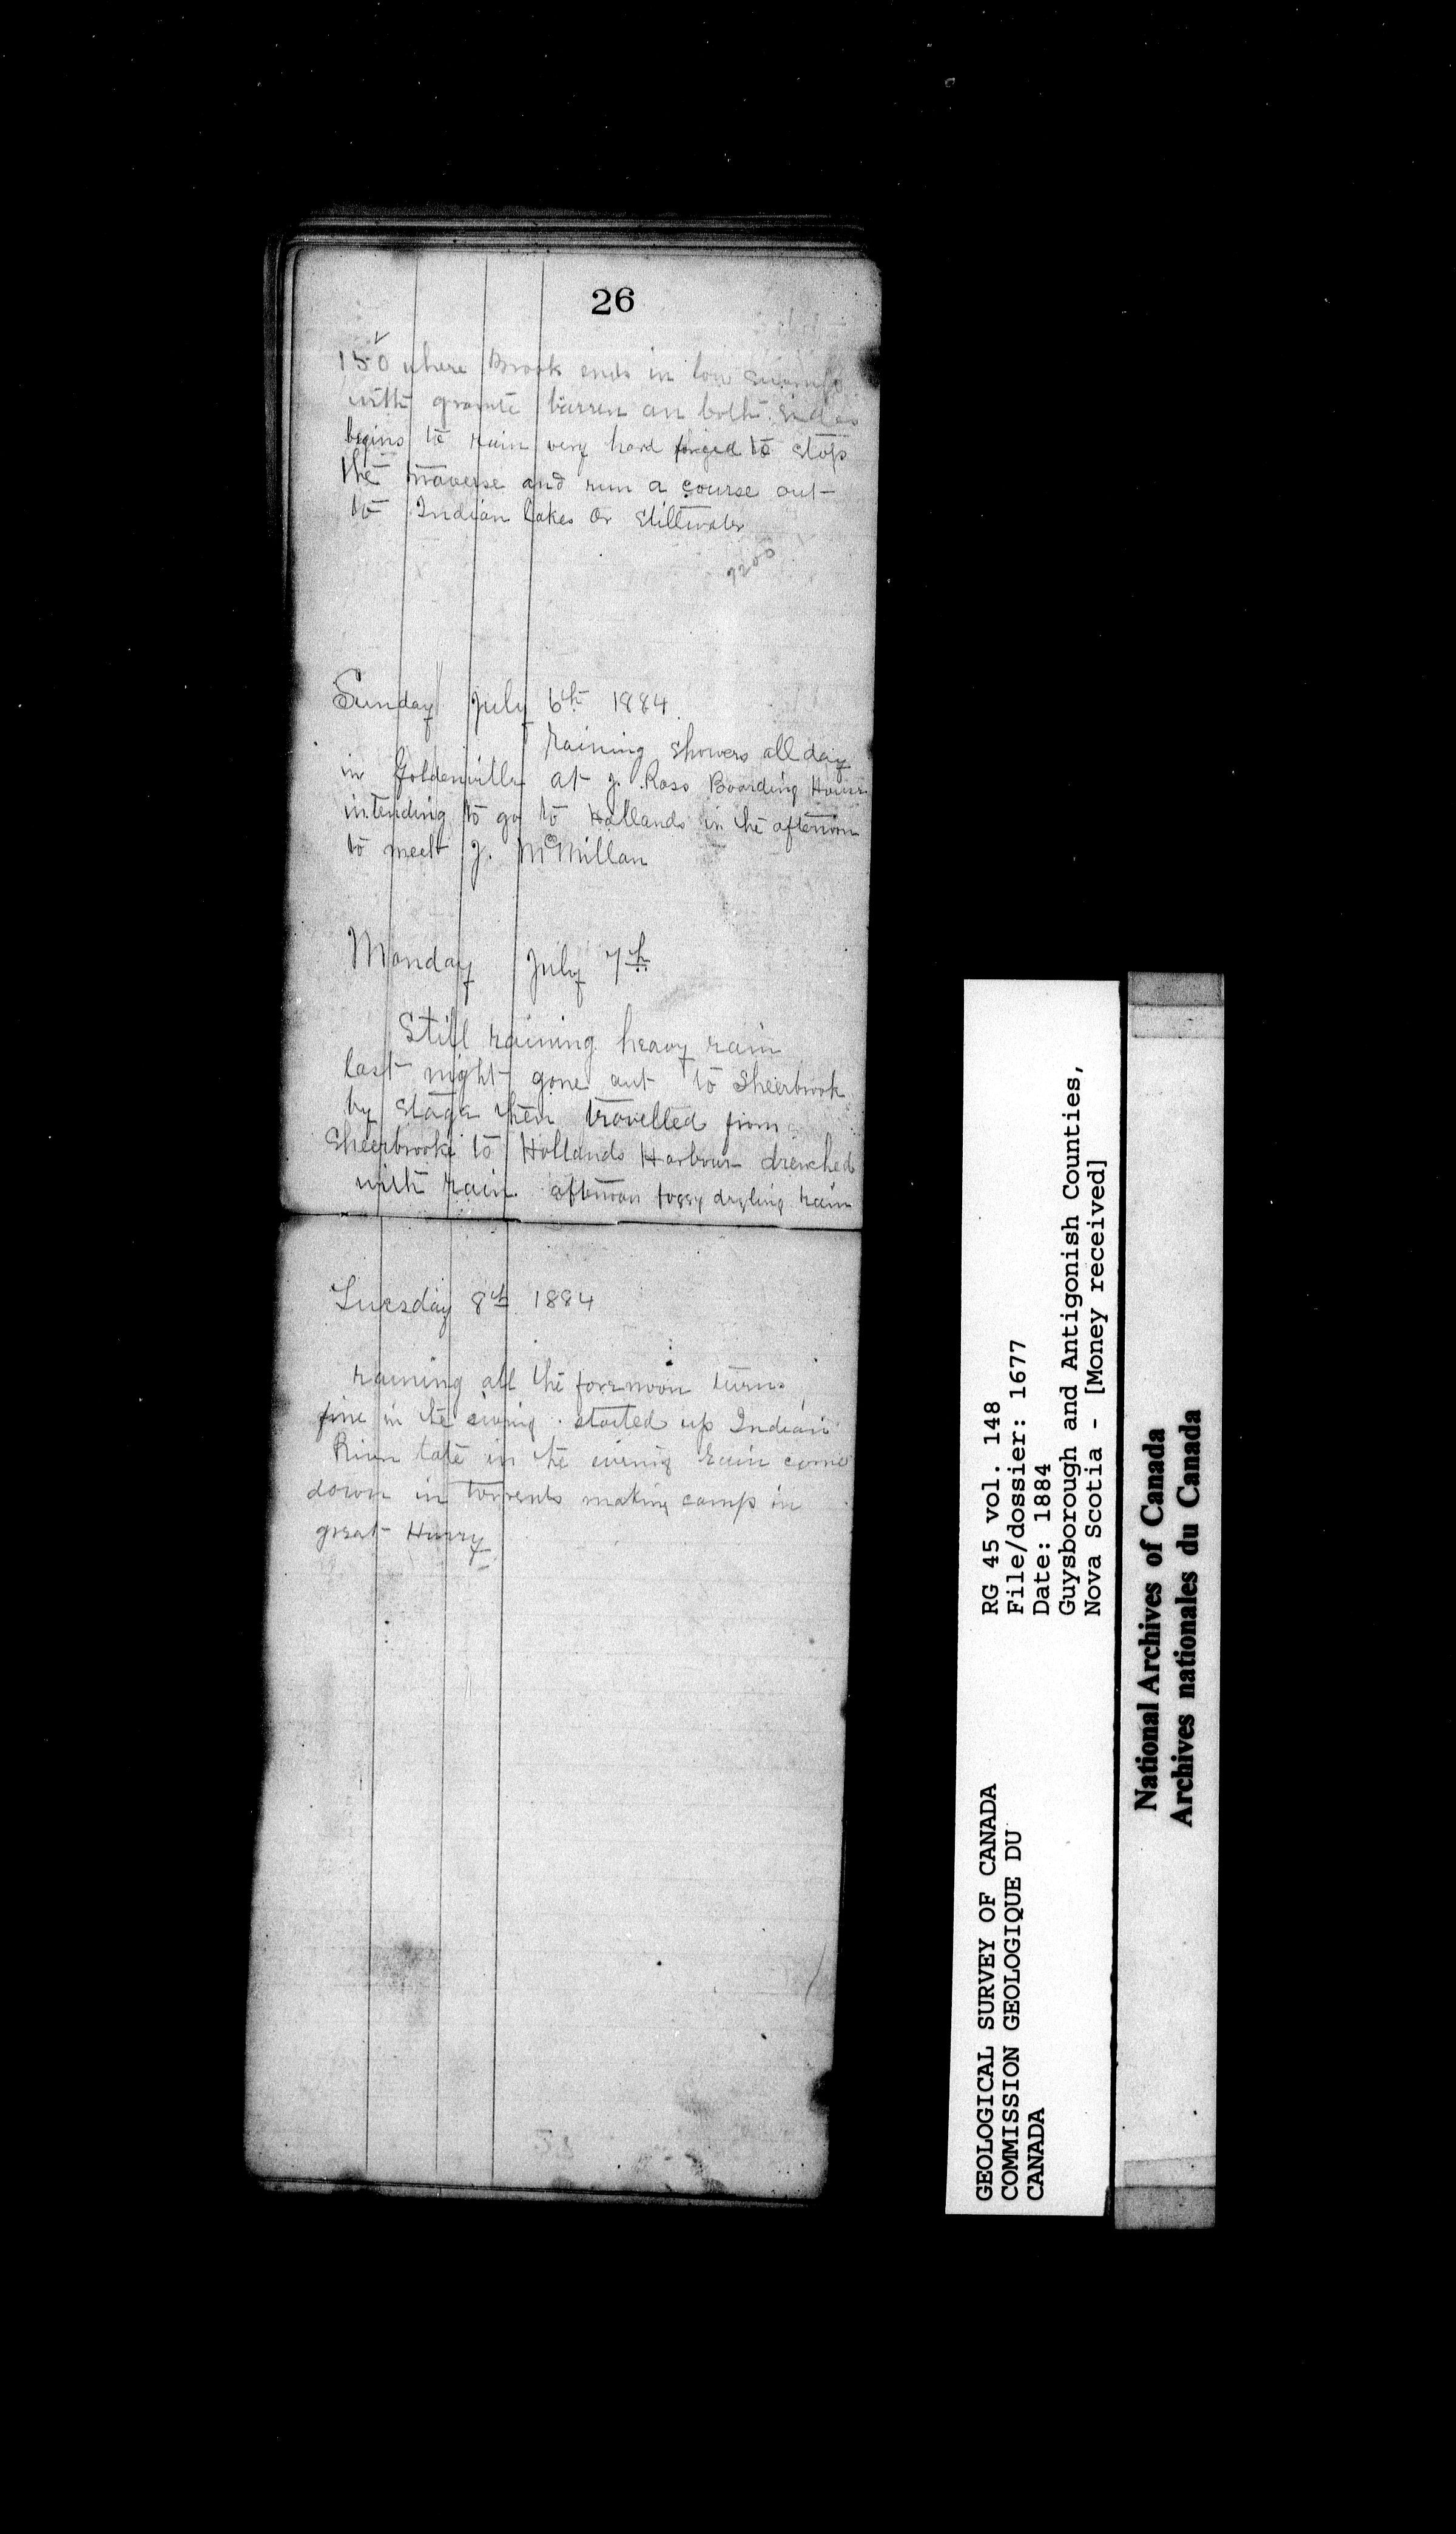 26
150 where Brook ends in low swamp
with granite barren on both sides
begins to rain very hard forced to stop
the traverse and run a course out
to Indian Lakes or Stillwater
7200
Sunday July 6th 1884.
raining showers all day
in Goldenville at J. Ross Boarding House
intending to go to Hollands in the afternoon
to meet J. McMillan
Monday July 7th
Still raining heavy rain
last night gone out to Sheerbrook
by stage then travelled from
Sheerbrooke to Hollands Harbour drenched
with rain. afternoon foggy dryling rain
Tuesday 8th 1884
raining all the forenoon turns
fine in the evenig. started up Indian
River late in the evenig rain come
down in torrents making camp in
great Hurry
GEOLOGICAL SURVEY OF CANADA
COMMISSION GEOLOGIQUE DU
CANADA
RG 45 vol. 148
File/dossier: 1677
Date: 1884
Guysborough and Antigonish Counties,
Nova Scotia - [Money received]
National Archives of Canada
Archives nationales du Canada